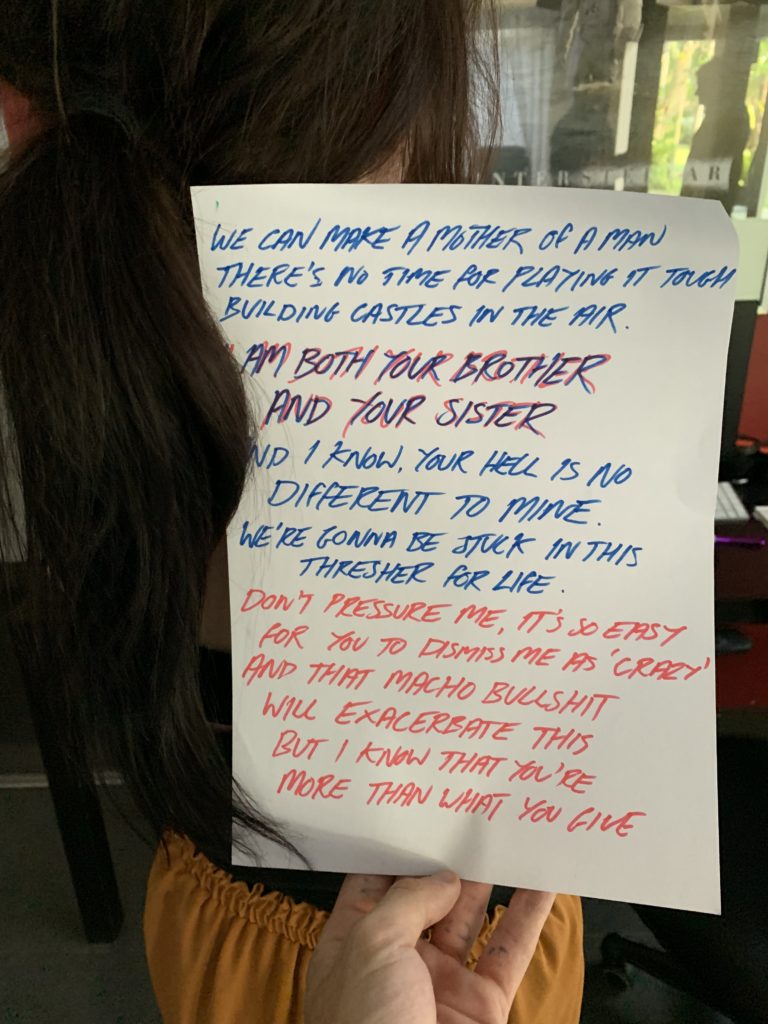 NTERSTELLAR
WE CAN MAKE A MOTHER OF A MAN
THERE'S NO TIME FOR PLAYING IT TOUGH
BUILDING CASTLES IN THE AIR.
I AM BOTH YOUR BROTHER
AND YOUR SISTER
ND I KNOW, YOUR HELL IS NO
DIFFERENT TO MINE.
WE'RE GONNA BE STUCK IN THIS
THRESHER FOR LIFE.
DON'T PRESSURE ME, IT'S SO EASY
FOR YOU TO DISMISS ME AS 'CRAZY'
AND THAT MACHO BULLSHIT
WILL EXACERBATE THIS
BUT I KNOW THAT YOU'RE
MORE THAN WHAT YOU GIVE